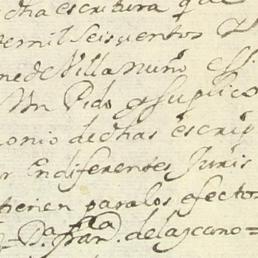 dha escritura que
mil Seiscientos
de Villa nuño
Pido y suplico
onio de dhas escrip
Yndiferentes Juris
tienen para los efectos
D.ª fran.ca de lazcano =